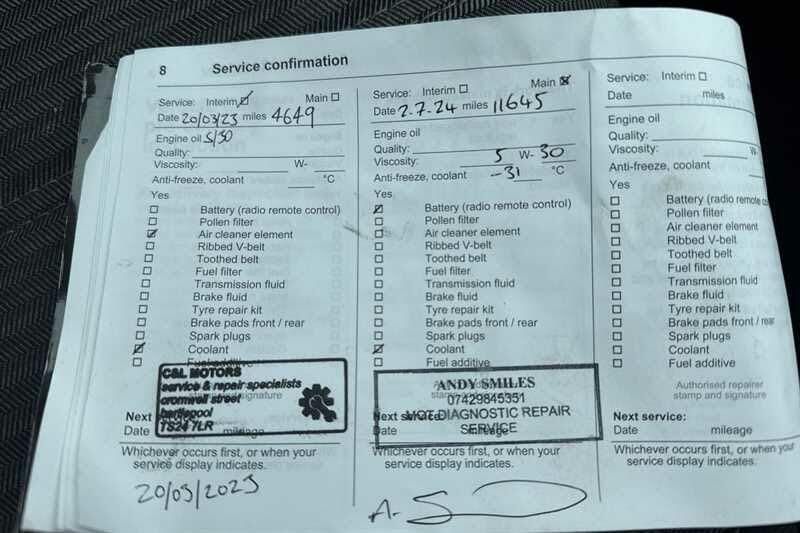 8 Service confirmation
Service: Interim Main
Date 20/03/23 miles 4649
Engine oil 5/30
Quality:
Viscosity: W-
Anti-freeze, coolant °C
Yes
Battery (radio remote control)
Pollen filter
Air cleaner element
Ribbed V-belt
Toothed belt
Fuel filter
Transmission fluid
Brake fluid
Tyre repair kit
Brake pads front / rear
Spark plugs
Coolant
Fuel additive
C&L MOTORS
service & repair specialists
cromwell street
hartlepool
TS24 7LR
stamp and signature
Next service:
Date mileage
Whichever occurs first, or when your
service display indicates.
20/03/2023
Service: Interim Main
Date 2.7.24 miles 11645
Engine oil
Quality:
Viscosity: 5 W- 30
Anti-freeze, coolant -31 °C
Yes
Battery (radio remote control)
Pollen filter
Air cleaner element
Ribbed V-belt
Toothed belt
Fuel filter
Transmission fluid
Brake fluid
Tyre repair kit
Brake pads front / rear
Spark plugs
Coolant
Fuel additive
ANDY SMILES
07429845351
MOT DIAGNOSTIC REPAIR
SERVICE
Next service:
Date mileage
Whichever occurs first, or when your
service display indicates.
A. S
Service: Interim
Date miles
Engine oil
Quality:
Viscosity: W
Anti-freeze, coolant
Yes
Battery (radio remote co
Pollen filter
Air cleaner element
Ribbed V-belt
Toothed belt
Fuel filter
Transmission fluid
Brake fluid
Tyre repair kit
Brake pads front / rear
Spark plugs
Coolant
Fuel additive
Authorised repairer
stamp and signature
Next service:
Date mileage
Whichever occurs first, or when your
service display indicates.